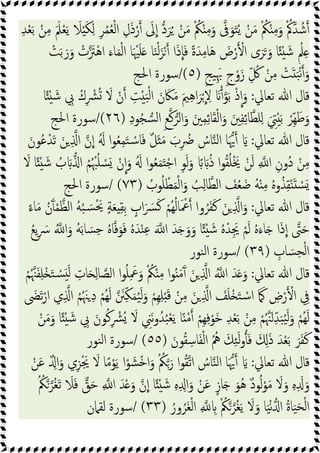 أَشُدَّكُمْ وَمِنْكُمْ مَنْ يُتَوَفَّى وَمِنْكُمْ مَنْ يُرَدُّ إِلَى أَرْذَلِ الْعُمُرِ لِكَيْلَا يَعْلَمَ مِنْ بَعْدِ
عِلْمٍ شَيْئًا وَتَرَى الْأَرْضَ هَامِدَةً فَإِذَا أَنْزَلْنَا عَلَيْهَا الْمَاءَ اهْتَزَّتْ وَرَبَتْ
وَأَنْبَتَتْ مِنْ كُلِّ زَوْجٍ بَهِيجٍ (٥)/سورة الحج
قال الله تعالى: وَإِذْ بَوَّأْنَا لِإِبْرَاهِيمَ مَكَانَ الْبَيْتِ أَنْ لَا تُشْرِكْ بِي شَيْئًا
وَطَهِّرْ بَيْتِيَ لِلطَّائِفِينَ وَالْقَائِمِينَ وَالرُّكَّعِ السُّجُودِ (٢٦)/سورة الحج
قال الله تعالى: يَا أَيُّهَا النَّاسُ ضُرِبَ مَثَلٌ فَاسْتَمِعُوا لَهُ إِنَّ الَّذِينَ تَدْعُونَ
مِنْ دُونِ اللَّهِ لَنْ يَخْلُقُوا ذُبَابًا وَلَوِ اجْتَمَعُوا لَهُ وَإِنْ يَسْلُبْهُمُ الذُّبَابُ شَيْئًا لَا
يَسْتَنْقِذُوهُ مِنْهُ ضَعُفَ الطَّالِبُ وَالْمَطْلُوبُ (٧٣) /سورة الحج
قال الله تعالى: وَالَّذِينَ كَفَرُوا أَعْمَالُهُمْ كَسَرَابٍ بِقِيعَةٍ يَحْسَبُهُ الظَّمْآنُ مَاءً
حَتَّى إِذَا جَاءَهُ لَمْ يَجِدْهُ شَيْئًا وَوَجَدَ اللَّهَ عِنْدَهُ فَوَفَّاهُ حِسَابَهُ وَاللَّهُ سَرِيعُ
الْحِسَابِ (٣٩) /سورة النور
قال الله تعالى: وَعَدَ اللَّهُ الَّذِينَ آمَنُوا مِنْكُمْ وَعَمِلُوا الصَّالِحَاتِ لَيَسْتَخْلِفَنَّهُمْ
فِي الْأَرْضِ كَمَا اسْتَخْلَفَ الَّذِينَ مِنْ قَبْلِهِمْ وَلَيُمَكِّنَنَّ لَهُمْ دِينَهُمُ الَّذِي ارْتَضَى
لَهُمْ وَلَيُبَدِّلَنَّهُمْ مِنْ بَعْدِ خَوْفِهِمْ أَمْنًا يَعْبُدُونَنِي لَا يُشْرِكُونَ بِي شَيْئًا وَمَنْ
كَفَرَ بَعْدَ ذَلِكَ فَأُولَئِكَ هُمُ الْفَاسِقُونَ (٥٥) /سورة النور
قال الله تعالى: يَا أَيُّهَا النَّاسُ اتَّقُوا رَبَّكُمْ وَاخْشَوْا يَوْمًا لَا يَجْزِي وَالِدٌ عَنْ
وَلَدِهِ وَلَا مَوْلُودٌ هُوَ جَازٍ عَنْ وَالِدِهِ شَيْئًا إِنَّ وَعْدَ اللَّهِ حَقٌّ فَلَا تَغُرَّنَّكُمُ
الْحَيَاةُ الدُّنْيَا وَلَا يَغُرَّنَّكُمْ بِاللَّهِ الْغَرُورُ (٣٣) /سورة لقمان